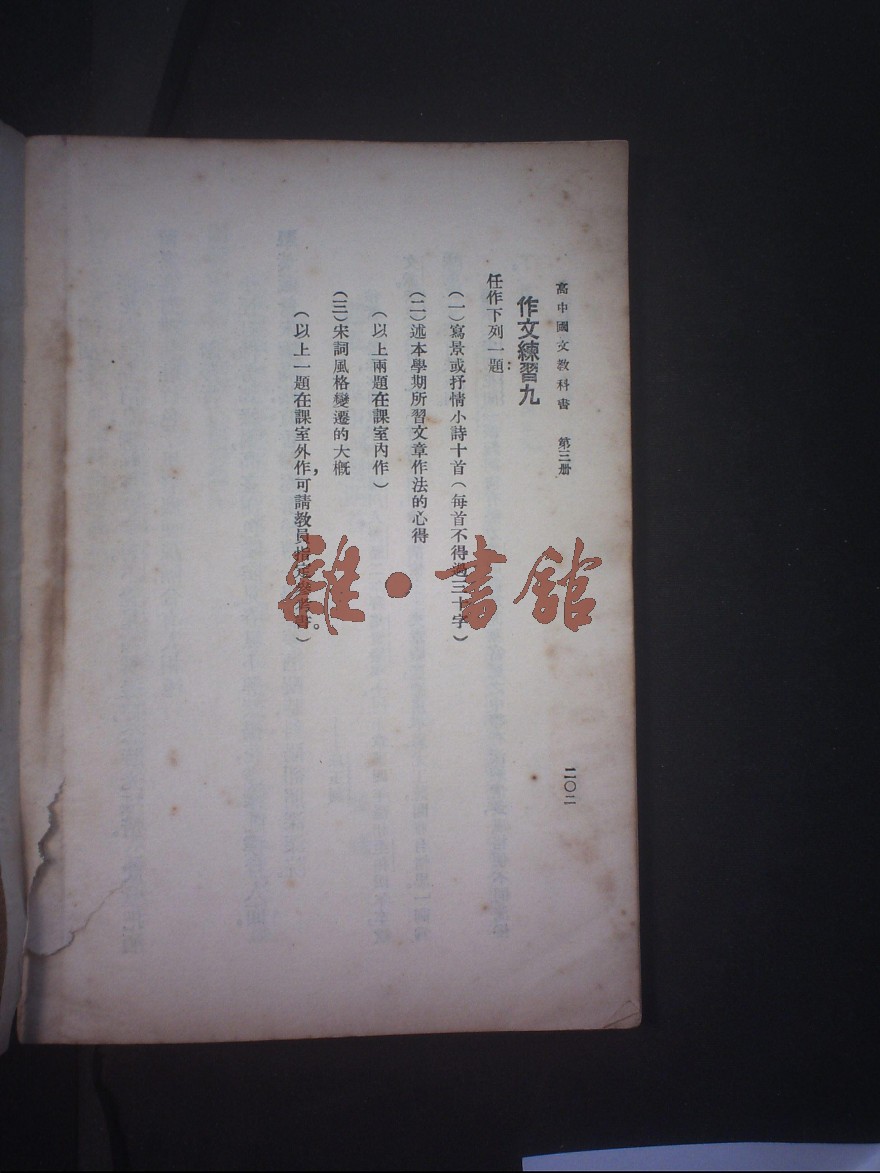 高中國文教科書 第三册
二〇二
作文練習九
任作下列一題：
（一）寫景或抒情小詩十首（每首不得過三十字）
（二）述本學期所習文章作法的心得
（以上兩題在課室內作）
（三）宋詞風格變遷的大槪
（以上一題在課室外作，可請教員指定參考書。）
雜·書館